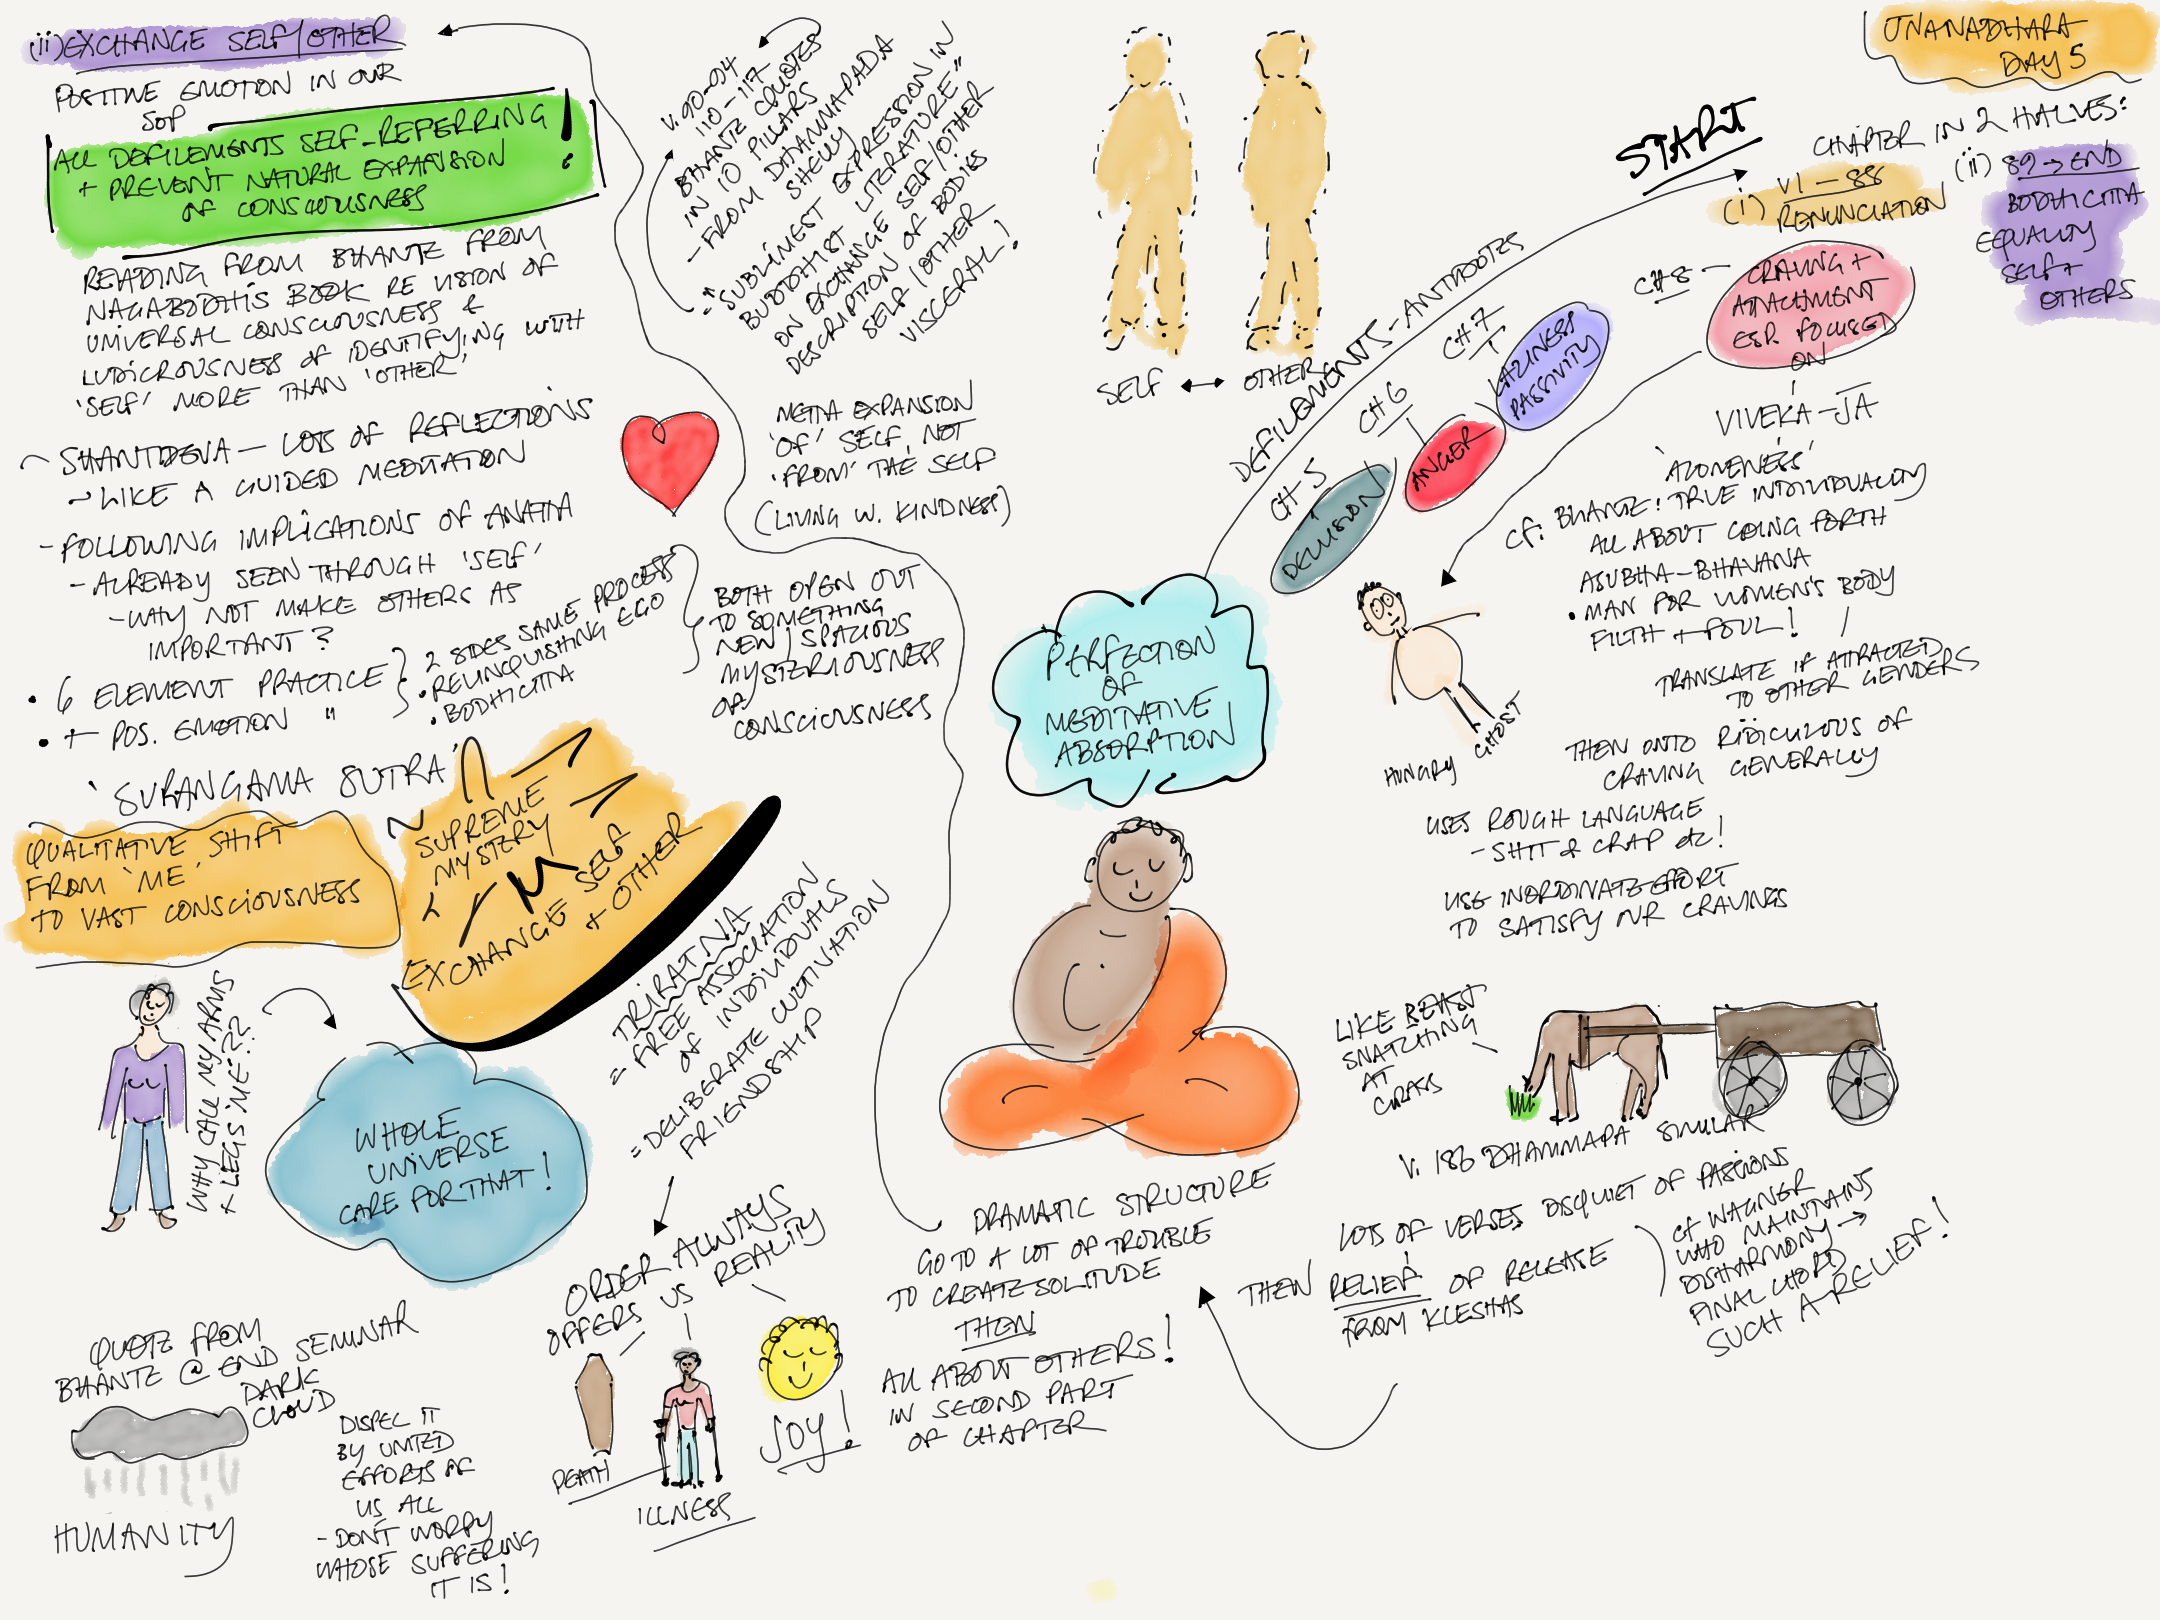 JNANADHARA
DAY 5
START
CHAPTER IN 2 HALVES:
(i) V1 – 88
RENUNCIATION
(ii) 89 → END
BODHICITTA
EQUALITY
SELF +
OTHERS
DEFILEMENTS – ANTIDOTES
CH 5
DELUSION
CH 6
ANGER
CH 7
LAZINESS
PASSIVITY
CH 8 –
CRAVING +
ATTACHMENT
ESP. FOCUSED
ON
VIVEKA – JA
'ALONENESS'
CF: BHANTE: TRUE INDIVIDUALITY
ALL ABOUT GOING FORTH
ASUBHA – BHAVANA
• MAN FOR WOMEN'S BODY
FILTH + FOUL!
TRANSLATE IF ATTRACTED
TO OTHER GENDERS
THEN ONTO RIDICULOUS OF
CRAVING GENERALLY
USES ROUGH LANGUAGE
- SHIT & CRAP etc!
USE INORDINATE EFFORT
TO SATISFY OUR CRAVINGS
HUNGRY GHOST
LIKE BEAST
SNATCHING
AT
GRASS
V. 186 DHAMMAPA SIMILAR
LOTS OF VERSES DISQUIET OF PASSIONS
THEN RELIEF OF RELEASE
FROM KLESHAS
cf WAGNER
WHO MAINTAINS
DISHARMONY →
FINAL CHORD
SUCH A RELIEF!
PERFECTION
OF
MEDITATIVE
ABSORPTION
DRAMATIC STRUCTURE
GO TO A LOT OF TROUBLE
TO CREATE SOLITUDE
THEN
ALL ABOUT OTHERS!
IN SECOND PART
OF CHAPTER
SELF ↔ OTHER
(ii) EXCHANGE SELF/OTHER
POSITIVE EMOTION IN OUR
SOP
ALL DEFILEMENTS SELF-REFERRING
+ PREVENT NATURAL EXPANSION
OF CONSCIOUSNESS
!
READING FROM BHANTE FROM
NAGABODHI'S BOOK RE VISION OF
UNIVERSAL CONSCIOUSNESS &
LUDICROUSNESS OF IDENTIFYING WITH
'SELF' MORE THAN 'OTHER'
V. 90-94
110-117
BHANTE QUOTES
IN 10 PILLARS
- FROM DHAMMAPADA
SHELLY
= "SUBLIMEST EXPRESSION IN
BUDDHIST LITERATURE"
ON EXCHANGE SELF/OTHER
DESCRIPTION OF BODIES
SELF/OTHER
VISCERAL!
METTA EXPANSION
'OF' SELF, NOT
'FROM' THE SELF
(LIVING W. KINDNESS)
SHANTIDEVA – LOTS OF REFLECTIONS
~ LIKE A GUIDED MEDITATION
- FOLLOWING IMPLICATIONS OF ANATTA
- ALREADY SEEN THROUGH 'SELF'
- WHY NOT MAKE OTHERS AS
IMPORTANT?
• 6 ELEMENT PRACTICE
• + POS. EMOTION "
• 2 SIDES SAME PROCESS
• RELINQUISHING EGO
• BODHICITTA
BOTH OPEN OUT
TO SOMETHING
NEW / SPACIOUS
MYSTERIOUSNESS
OF
CONSCIOUSNESS
'SURANGAMA SUTRA'
QUALITATIVE SHIFT
FROM 'ME'
TO VAST CONSCIOUSNESS
SUPREME
MYSTERY
EXCHANGE SELF
+ OTHER
WHY CALL MY ARMS
+ LEGS 'ME'??
WHOLE
UNIVERSE
CARE FOR THAT!
TRIRATNA
= FREE ASSOCIATION
OF INDIVIDUALS
= DELIBERATE CULTIVATION
FRIENDSHIP
ORDER ALWAYS
OFFERS US REALITY
DEATH
ILLNESS
JOY!
QUOTE FROM
BHANTE @ END SEMINAR
DARK
CLOUD
HUMANITY
DISPEL IT
BY UNITED
EFFORTS OF
US ALL
- DON'T WORRY
WHOSE SUFFERING
IT IS!